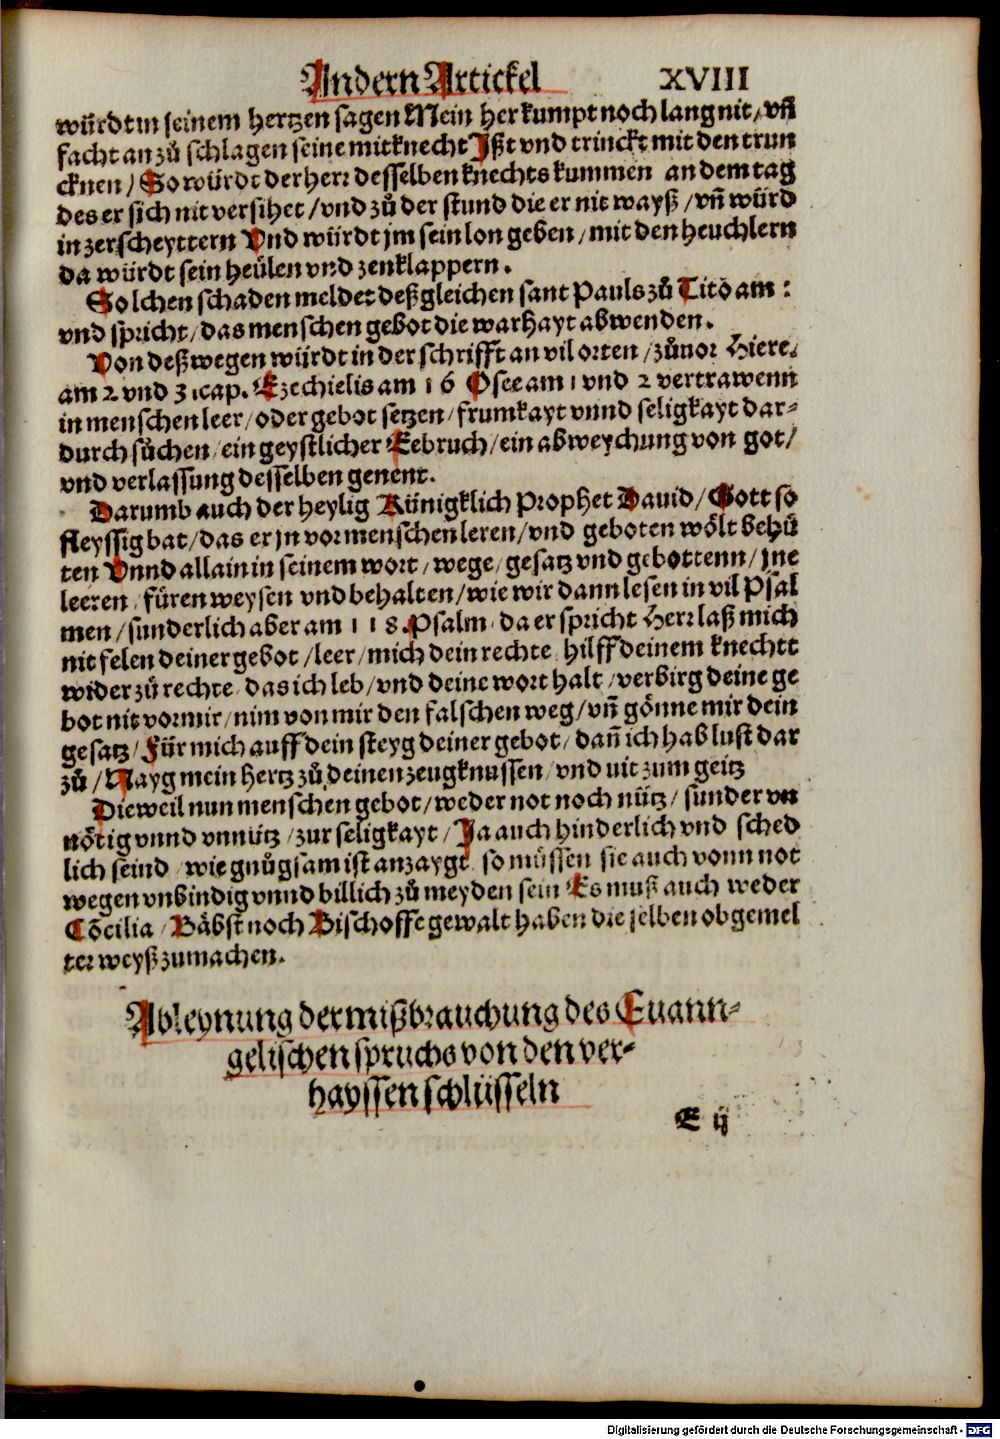 Andern Artickel XVIII
würdt in seinem hertzen sagen Mein her kumpt noch lang nit/ vñ
facht an zů schlagen seine mitknecht Jßt vnd trinckt mit den trun
cknen/ So würdt der herr desselben knechts kummen an dem tag
des er sich nit versihet/ vnd zů der stund die er nit wayß/ vñ würd
in zerscheyttern Vnd würdt jm sein lon geben/ mit den heuchlern
da würdt sein heülen vnd zenklappern.
Solchen schaden meldet deßgleichen sant Pauls zů Titō am :
vnd spricht/ das menschen gebot die warhayt abwenden.
Von deßwegen würdt in der schrifft an vil orten/ zůuor Hiere.
am 2 vnd 3. cap. Ezechielis am 16 Osee am 1 vnd 2 vertrawenn
in menschen leer/ oder gebot setzen/ frumkayt vnnd seligkayt dar⸗
durch sůchen/ ein geystlicher Eebruch/ ein abweychung von got/
vnd verlassung desselben genent.
Darumb auch der heylig Künigklich Prophet Dauid/ Gott so
fleyssig bat/ das er jn vor menschen leren/ vnd geboten wölt behů
ten Vnnd allain in seinem wort/ wege/ gesatz vnd gebottenn/ jne
leeren/ füren weysen vnd behalten/ wie wir dann lesen in vil Psal
men/ sunderlich aber am 118. Psalm/ da er spricht Herr laß mich
nit felen deiner gebot/ leer/ mich dein rechte/ hilff deinem knechtt
wider zů rechte/ das ich leb/ vnd deine wort halt/ verbirg deine ge
bot nit vor mir/ nim von mir den falschen weg/ vñ gönne mir dein
gesatz/ Für mich auff dein steyg deiner gebot/ dañ ich hab lust dar
zů/ Nayg mein hertz zů deinen zeugknussen/ vnd nit zum geitz
Dieweil nun menschen gebot/ weder not noch nütz/ sunder vn
nötig vnnd vnnütz/ zur seligkayt/ Ja auch hinderlich vnd sched
lich seind/ wie gnůgsam ist anzaygt/ so müssen sie auch vonn not
wegen vnbindig vnnd billich zů meyden sein Es muß auch weder
Cōcilia/ Bäbst noch Bischoffe gewalt haben die selben obgemel
ter weyß zumachen.
Ableynung der mißbrauchung des Euann⸗
gelischen spruchs von den ver⸗
hayssen schlüsseln
E ij
Digitalisierung gefördert durch die Deutsche Forschungsgemeinschaft - DFG